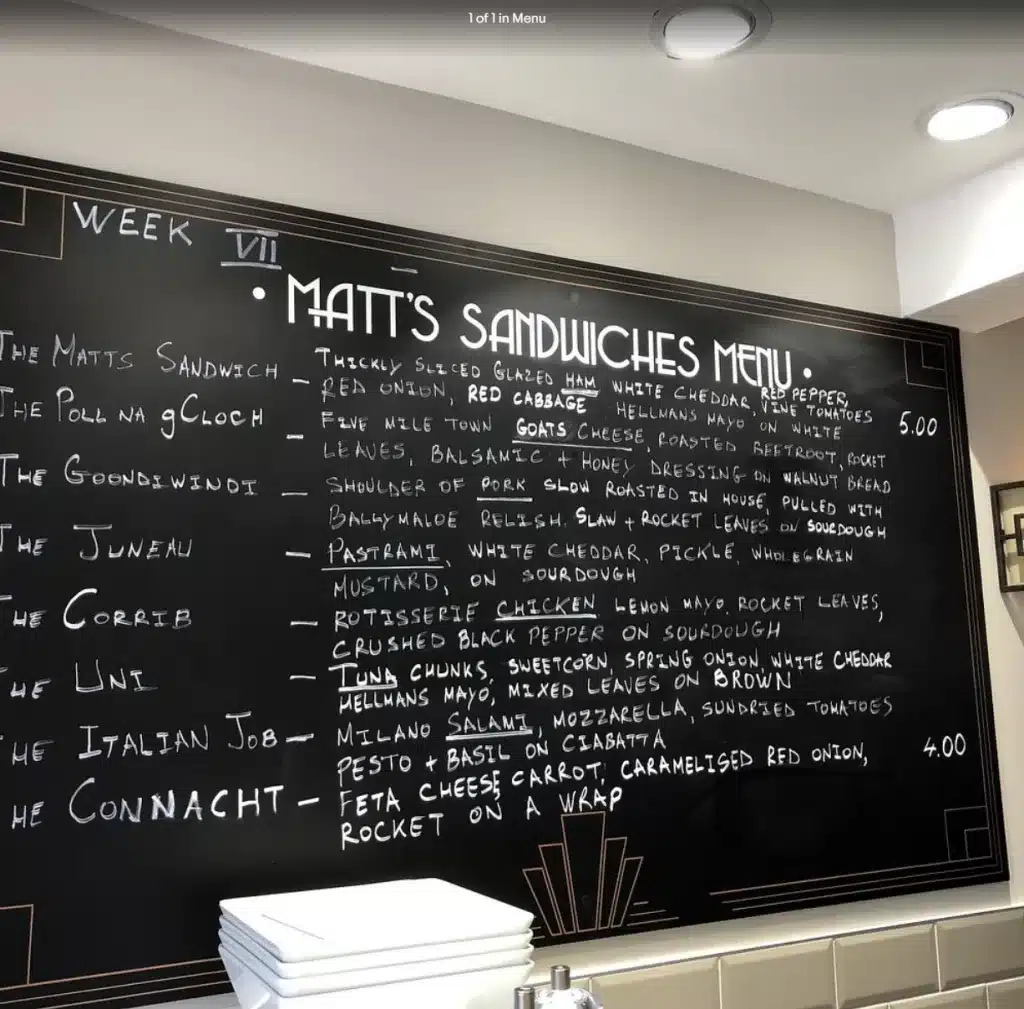 1 of 1 in Menu
WEEK VII
• MATT'S SANDWICHES MENU •
THE MATTS SANDWICH – THICKLY SLICED GLAZED HAM WHITE CHEDDAR, RED PEPPER,
RED ONION, RED CABBAGE HELLMANS MAYO ON WHITE VINE TOMATOES 5.00
THE POLL NA gCLOCH – FIVE MILE TOWN GOATS CHEESE, ROASTED BEETROOT, ROCKET
LEAVES, BALSAMIC + HONEY DRESSING ON WALNUT BREAD
THE GOONDIWINDI – SHOULDER OF PORK SLOW ROASTED IN HOUSE, PULLED WITH
BALLYMALOE RELISH, SLAW + ROCKET LEAVES ON SOURDOUGH
THE JUNEAU – PASTRAMI, WHITE CHEDDAR, PICKLE, WHOLEGRAIN
MUSTARD, ON SOURDOUGH
HE CORRIB – ROTISSERIE CHICKEN LEMON MAYO, ROCKET LEAVES,
CRUSHED BLACK PEPPER ON SOURDOUGH
HE UNI – TUNA CHUNKS, SWEETCORN, SPRING ONION, WHITE CHEDDAR
HELLMANS MAYO, MIXED LEAVES ON BROWN
HE ITALIAN JOB – MILANO SALAMI, MOZZARELLA, SUNDRIED TOMATOES
PESTO + BASIL ON CIABATTA 4.00
HE CONNACHT – FETA CHEESE, CARROT, CARAMELISED RED ONION,
ROCKET ON A WRAP